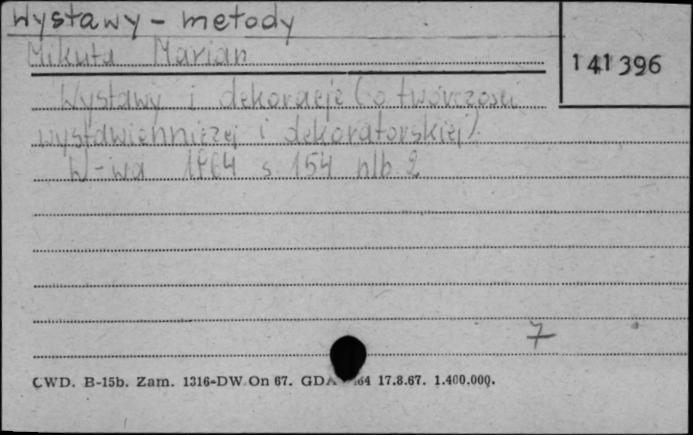 Wystawy - metody
Mikuta Marian
141396
Wystawy i dekoracje (o twórczości
wystawienniczej i dekoratorskiej).
W-wa 1964 s. 154 nlb. 2
7
CWD. B-15b. Zam. 1316-DW.On 67. GDA 64 17.8.67. 1.400.000.